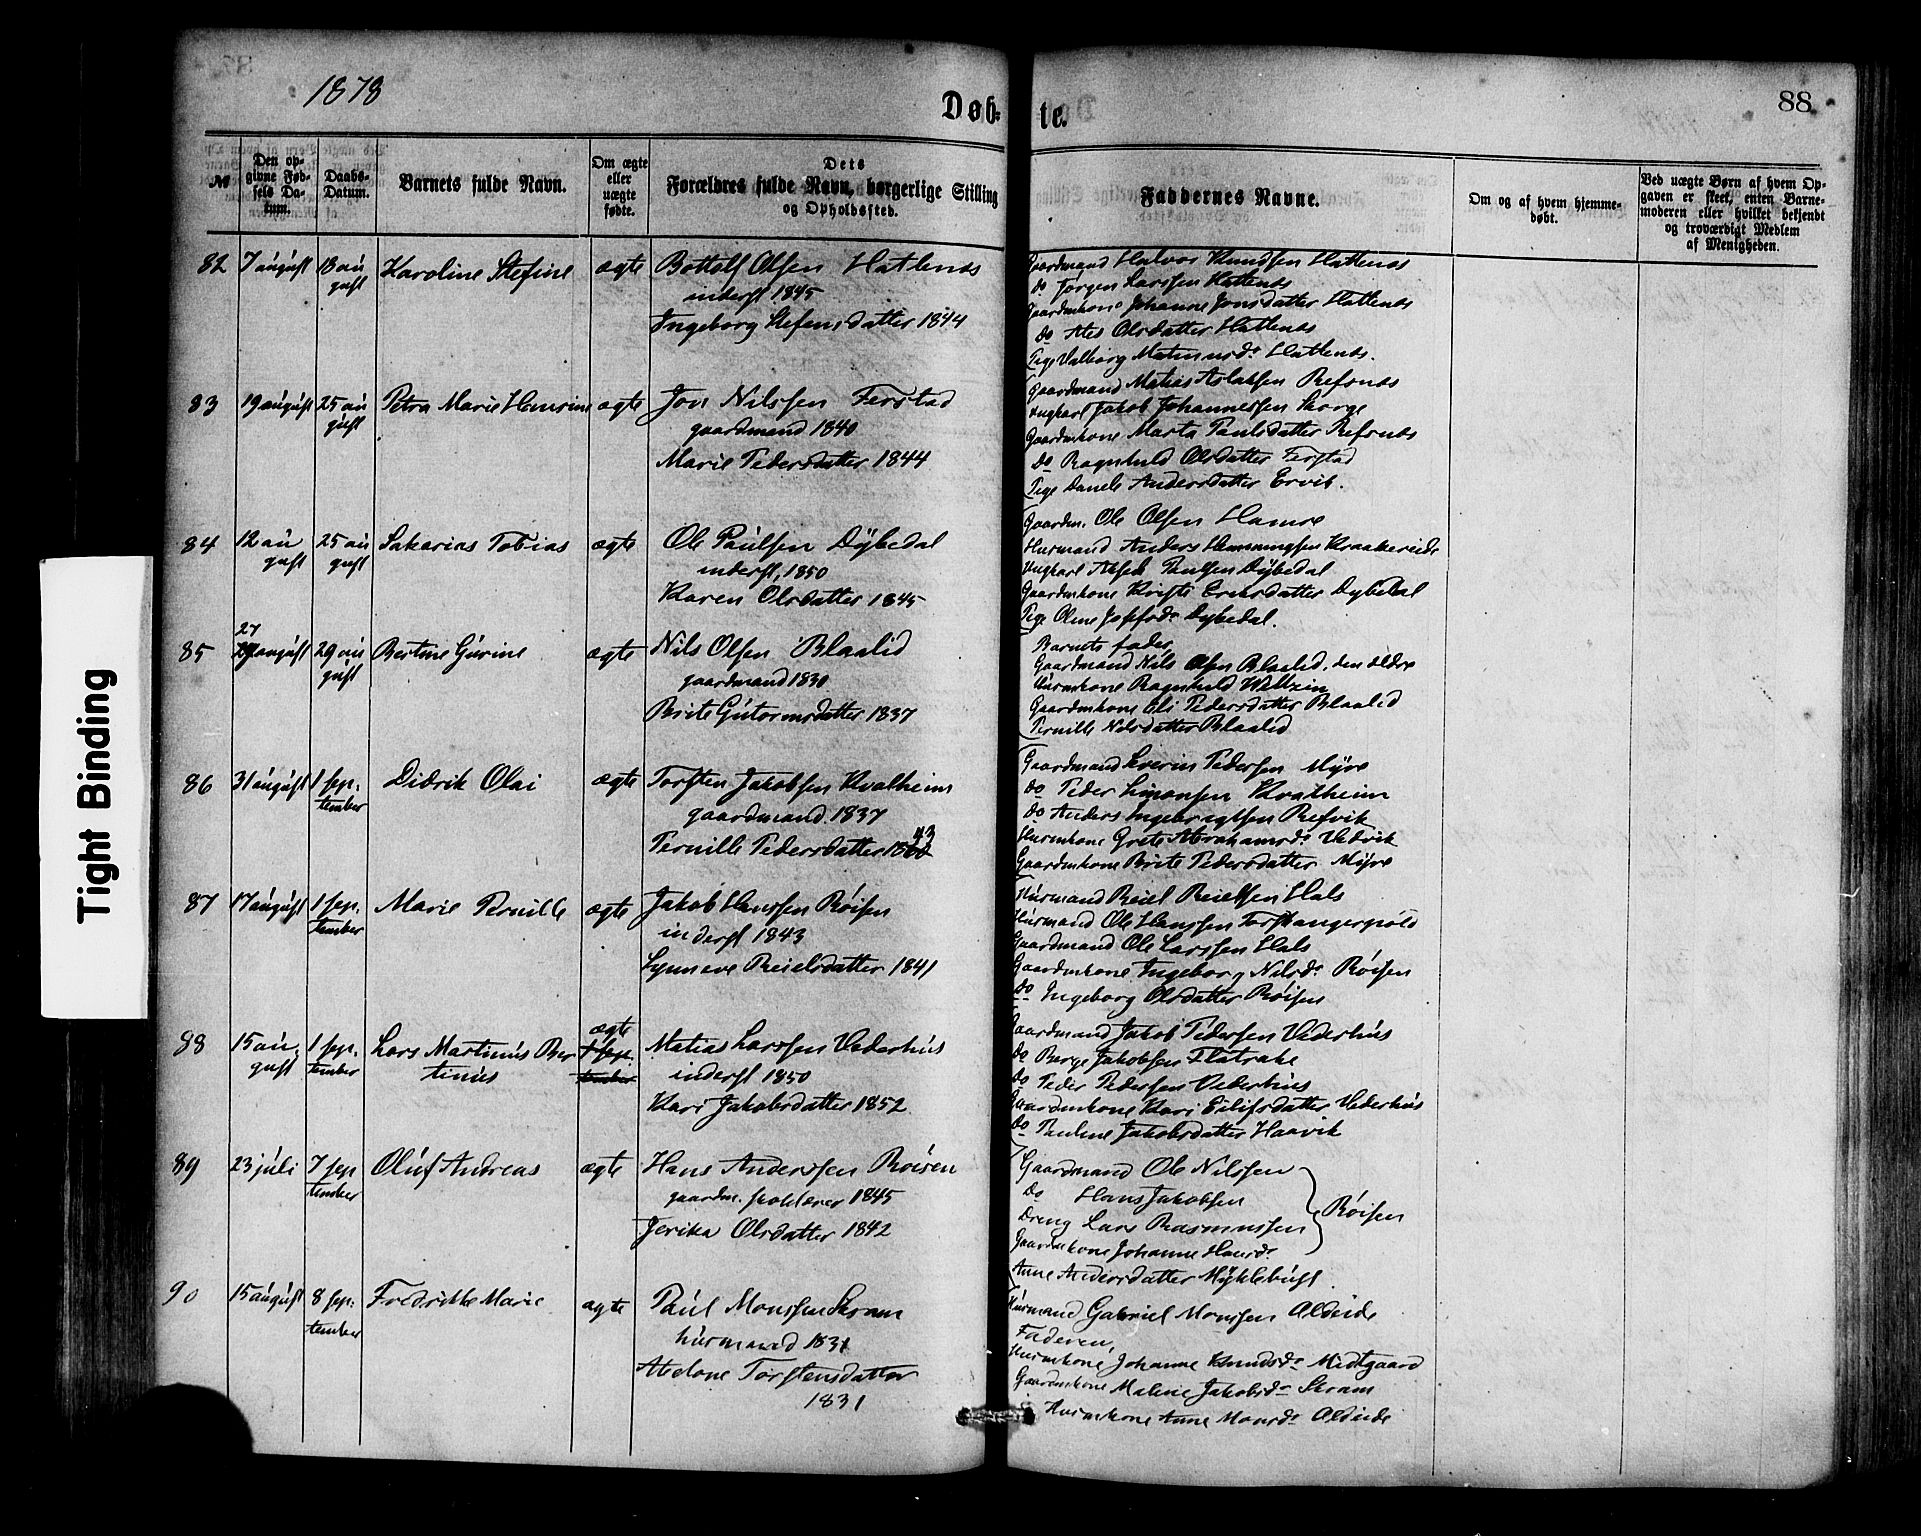 1878
Døb-
te.
88
Tight Binding
№
Den op-
givne Fød-
sels Da-
tum.
Daabs-
Datum.
Barnets fulde Navn.
Om ægte
eller
uægte
fødte.
Dets
Forældres fulde Navn, borgerlige Stilling
og Opholdssted.
Faddernes Navne.
Om og af hvem hjemme-
døbt.
Ved uægte Børn af hvem Op-
gaven er skeet, enten Barne-
moderen eller hvilket bekjendt
og troværdigt Medlem
af Menigheden.
82 7 august 18 au
gust Karoline Stefine ægte Bottolf Olsen Hatlenæs
inderst 1845
Ingeborg Stefensdatter 1844
Gaardmand Halvor Knudsen Hatlenæs
do Jørgen Larssen Hatlenæs
Gaardmkone Johanne Jonsdatter Hatlenæs
do Olsdatter Hatlenæs
Pige Valborg Hatlenæs.
83 19 august 25 au
gust Petra Marie Hansine ægte Jon Nilssen Ferstad
gaardmand 1840
Marie Pedersdatter 1844
Gaardmand Matias Aslaksen Refsnæs
Ungkarl Jakob Johannessen Skorge
Gaardmkone Marta Paulsdatter Refsnæs
do Ragnhild Olsdatter Ferstad
Pige Andersdatter Ervik.
84 12 au
gust 25 au
gust Sakarias Tobias ægte Ole Paulsen Dybedal
inderst, 1850
Karen Olsdatter 1845
Gaardm. Ole Olsen Hamre
Husmand Anders Hemmingsen Kraakereide
Ungkarl Paulsen Dybedal
Gaardmkone Kristi Eriksdatter Dybedal
Pige Oline Josefsdr Dybedal.
85 27
29 august 29 au
gust Bertine Gurine ægte Nils Olsen Blaalid
gaardmand 1830
Brite Gutormsdatter 1837
Barnets fader
Gaardmand Nils Olsen Blaalid, den ældre
Husmkone Ragnhild Weltzin
Gaardmkone Eli Pedersdatter Blaalid
Pernille Nilsdatter Blaalid
86 31 august 1 sep:
tember Didrik Olai ægte Torsten Jakobsen Kvalheim
gaardmand 1837
Pernille Pedersdatter 1843
Gaardmand Severin Pedersen Myre
do Peder Simonsen Kvalheim
do Anders Ingebrigtsen Refvik
Husmkone Grete Abrahamsdr Vedvik
Gaardmkone Brite Pedersdatter Myre
87 17 august 1 sep:
tember Marie Pernille ægte Jakob Hanssen Røisen
inderst 1843
Synneve Reielsdatter 1841
Husmand Reiel Reielsen Hals
Husmand Ole Hanssen Torskangerpold
Gaardmand Ole Larssen Hals
Gaardmkone Ingeborg Nilsdr Røisen
do Ingeborg Olsdatter Røisen
88 15 au:
gust 1 sep:
tember Lars Martinus Ber
tinus ægte
1 sep:
tember Matias Larssen Vederhus
inderst 1850
Kari Jakobsdatter 1852
Gaardmand Jakob Pedersen Vederhus
do Børge Jakobsen Flatrake
do Peder Pedersen Vederhus
Gaardmkone Kari Eilifsdatter Vederhus
do Pauline Jakobsdatter Haavik
89 23 juli 7 sep
tember Oluf Andreas ægte Hans Anderssen Røisen
gaardm. skolelærer 1845
Jerika Olsdatter 1842
Gaardmand Ole Nilssen
do Hans Jakobsen
Dreng Lars Rasmussen
Røisen
Gaardmkone Johanne Hansdr
Anne Andersdatter Myklebust
90 15 august 8 sep:
tember Fredrikke Marie ægte Paul Monssen Skram
husmand 1831
Abelone Torstensdatter
1831
Husmand Gabriel Monssen Aldeide
Faderen,
Husmkone Johanne Knudsdr Midtgaard
Gaardmkone Maline Jakobsdr Skram
Husmkone Anne Monsdr Aldeide